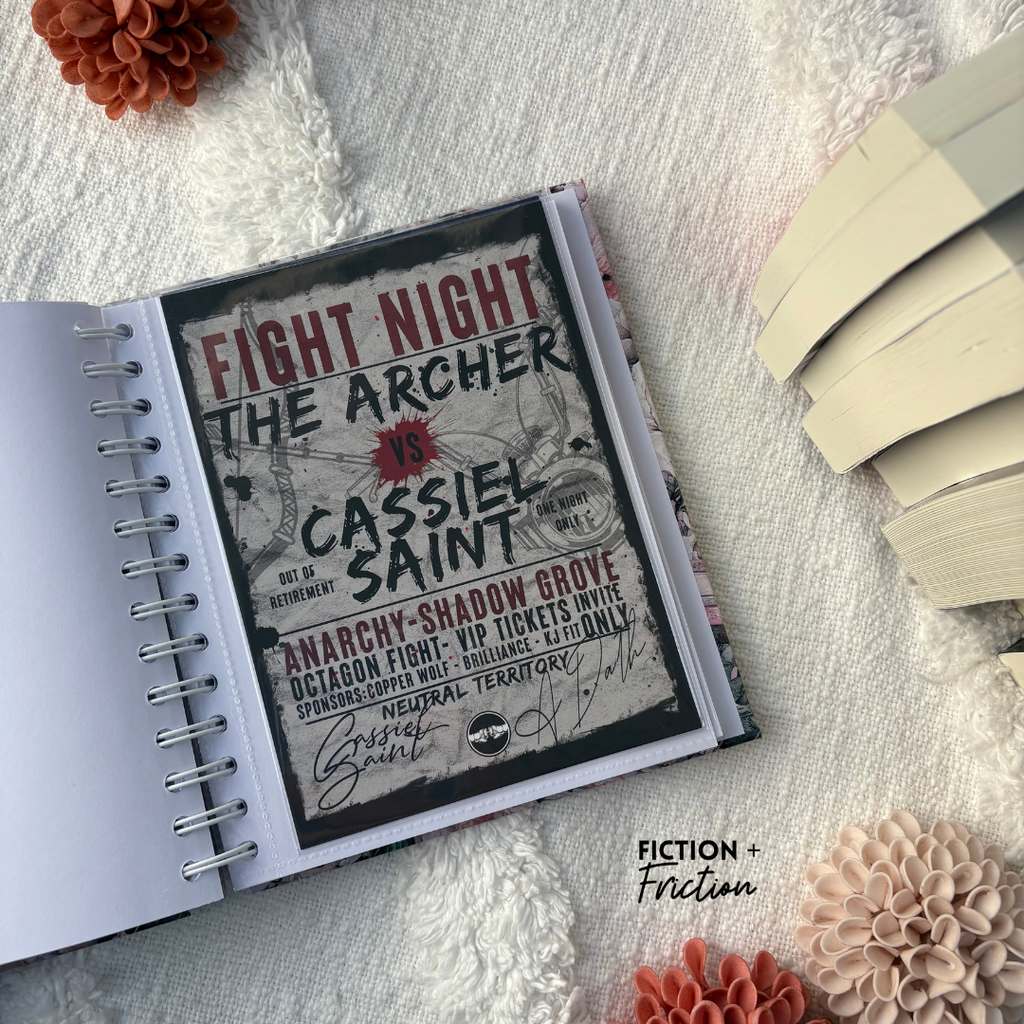 FIGHT NIGHT
THE ARCHER
VS
CASSIEL
SAINT
ONE NIGHT
ONLY
OUT OF
RETIREMENT
ANARCHY-SHADOW GROVE
OCTAGON FIGHT- VIP TICKETS INVITE ONLY
SPONSORS:COPPER WOLF - BRILLIANCE - KJ FIT
NEUTRAL TERRITORY
Cassiel
Saint
FICTION +
Friction